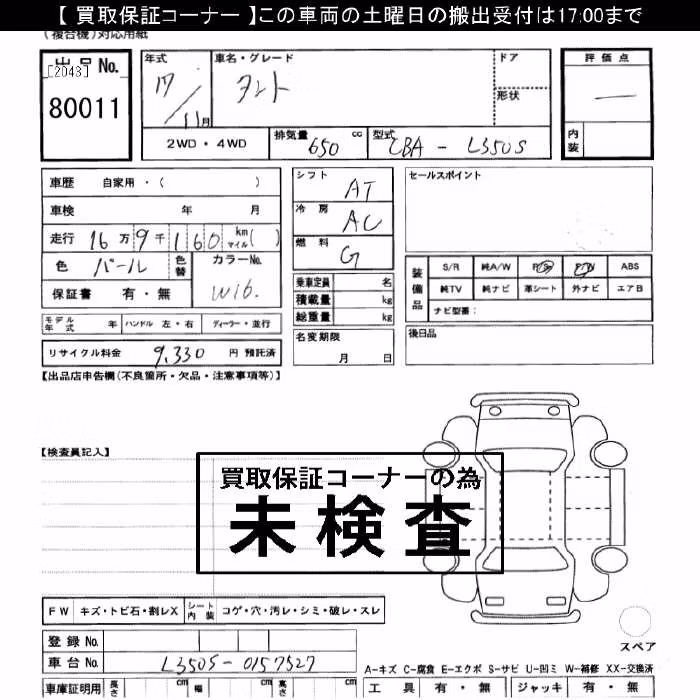 【 買取保証コーナー 】この車両の土曜日の搬出受付は17:00まで
(複合機)対応用紙
出品No.
[2043]
80011
年式
17/11月
車名・グレード
タント
ドア
形状
評価点
―
内装
2WD・4WD
排気量 650 cc
型式 CBA - L350S
車歴 自家用・( )
車検 年 月
走行 16万9千160 km マイル( )
色 パール 色替
カラーNo.
W16.
保証書 有・無
シフト AT
冷房 AC
燃料 G
乗車定員 名
積載量 kg
総重量 kg
名変期限
月 日
セールスポイント
装備品
S/R 純A/W P/S P/W ABS
純TV 純ナビ 革シート 外ナビ エアB
ナビ型番：
後日品
モデル年式 年 ハンドル 左・右 ディーラー・並行
リサイクル料金 9,330 円 預託済
【出品店申告欄(不良箇所・欠品・注意事項等)】
【検査員記入】
買取保証コーナーの為
未検査
FW キズ・トビ石・割レX シート内装 コゲ・穴・汚レ・シミ・破レ・スレ
登録No.
車台No. L350S-0157527
スペア
A-キズ C-腐食 E-エクボ S-サビ U-凹ミ W-補修 XX-交換済
車庫証明用 長さ cm 幅 cm 高さ cm
工具 有・無 ジャッキ 有・無